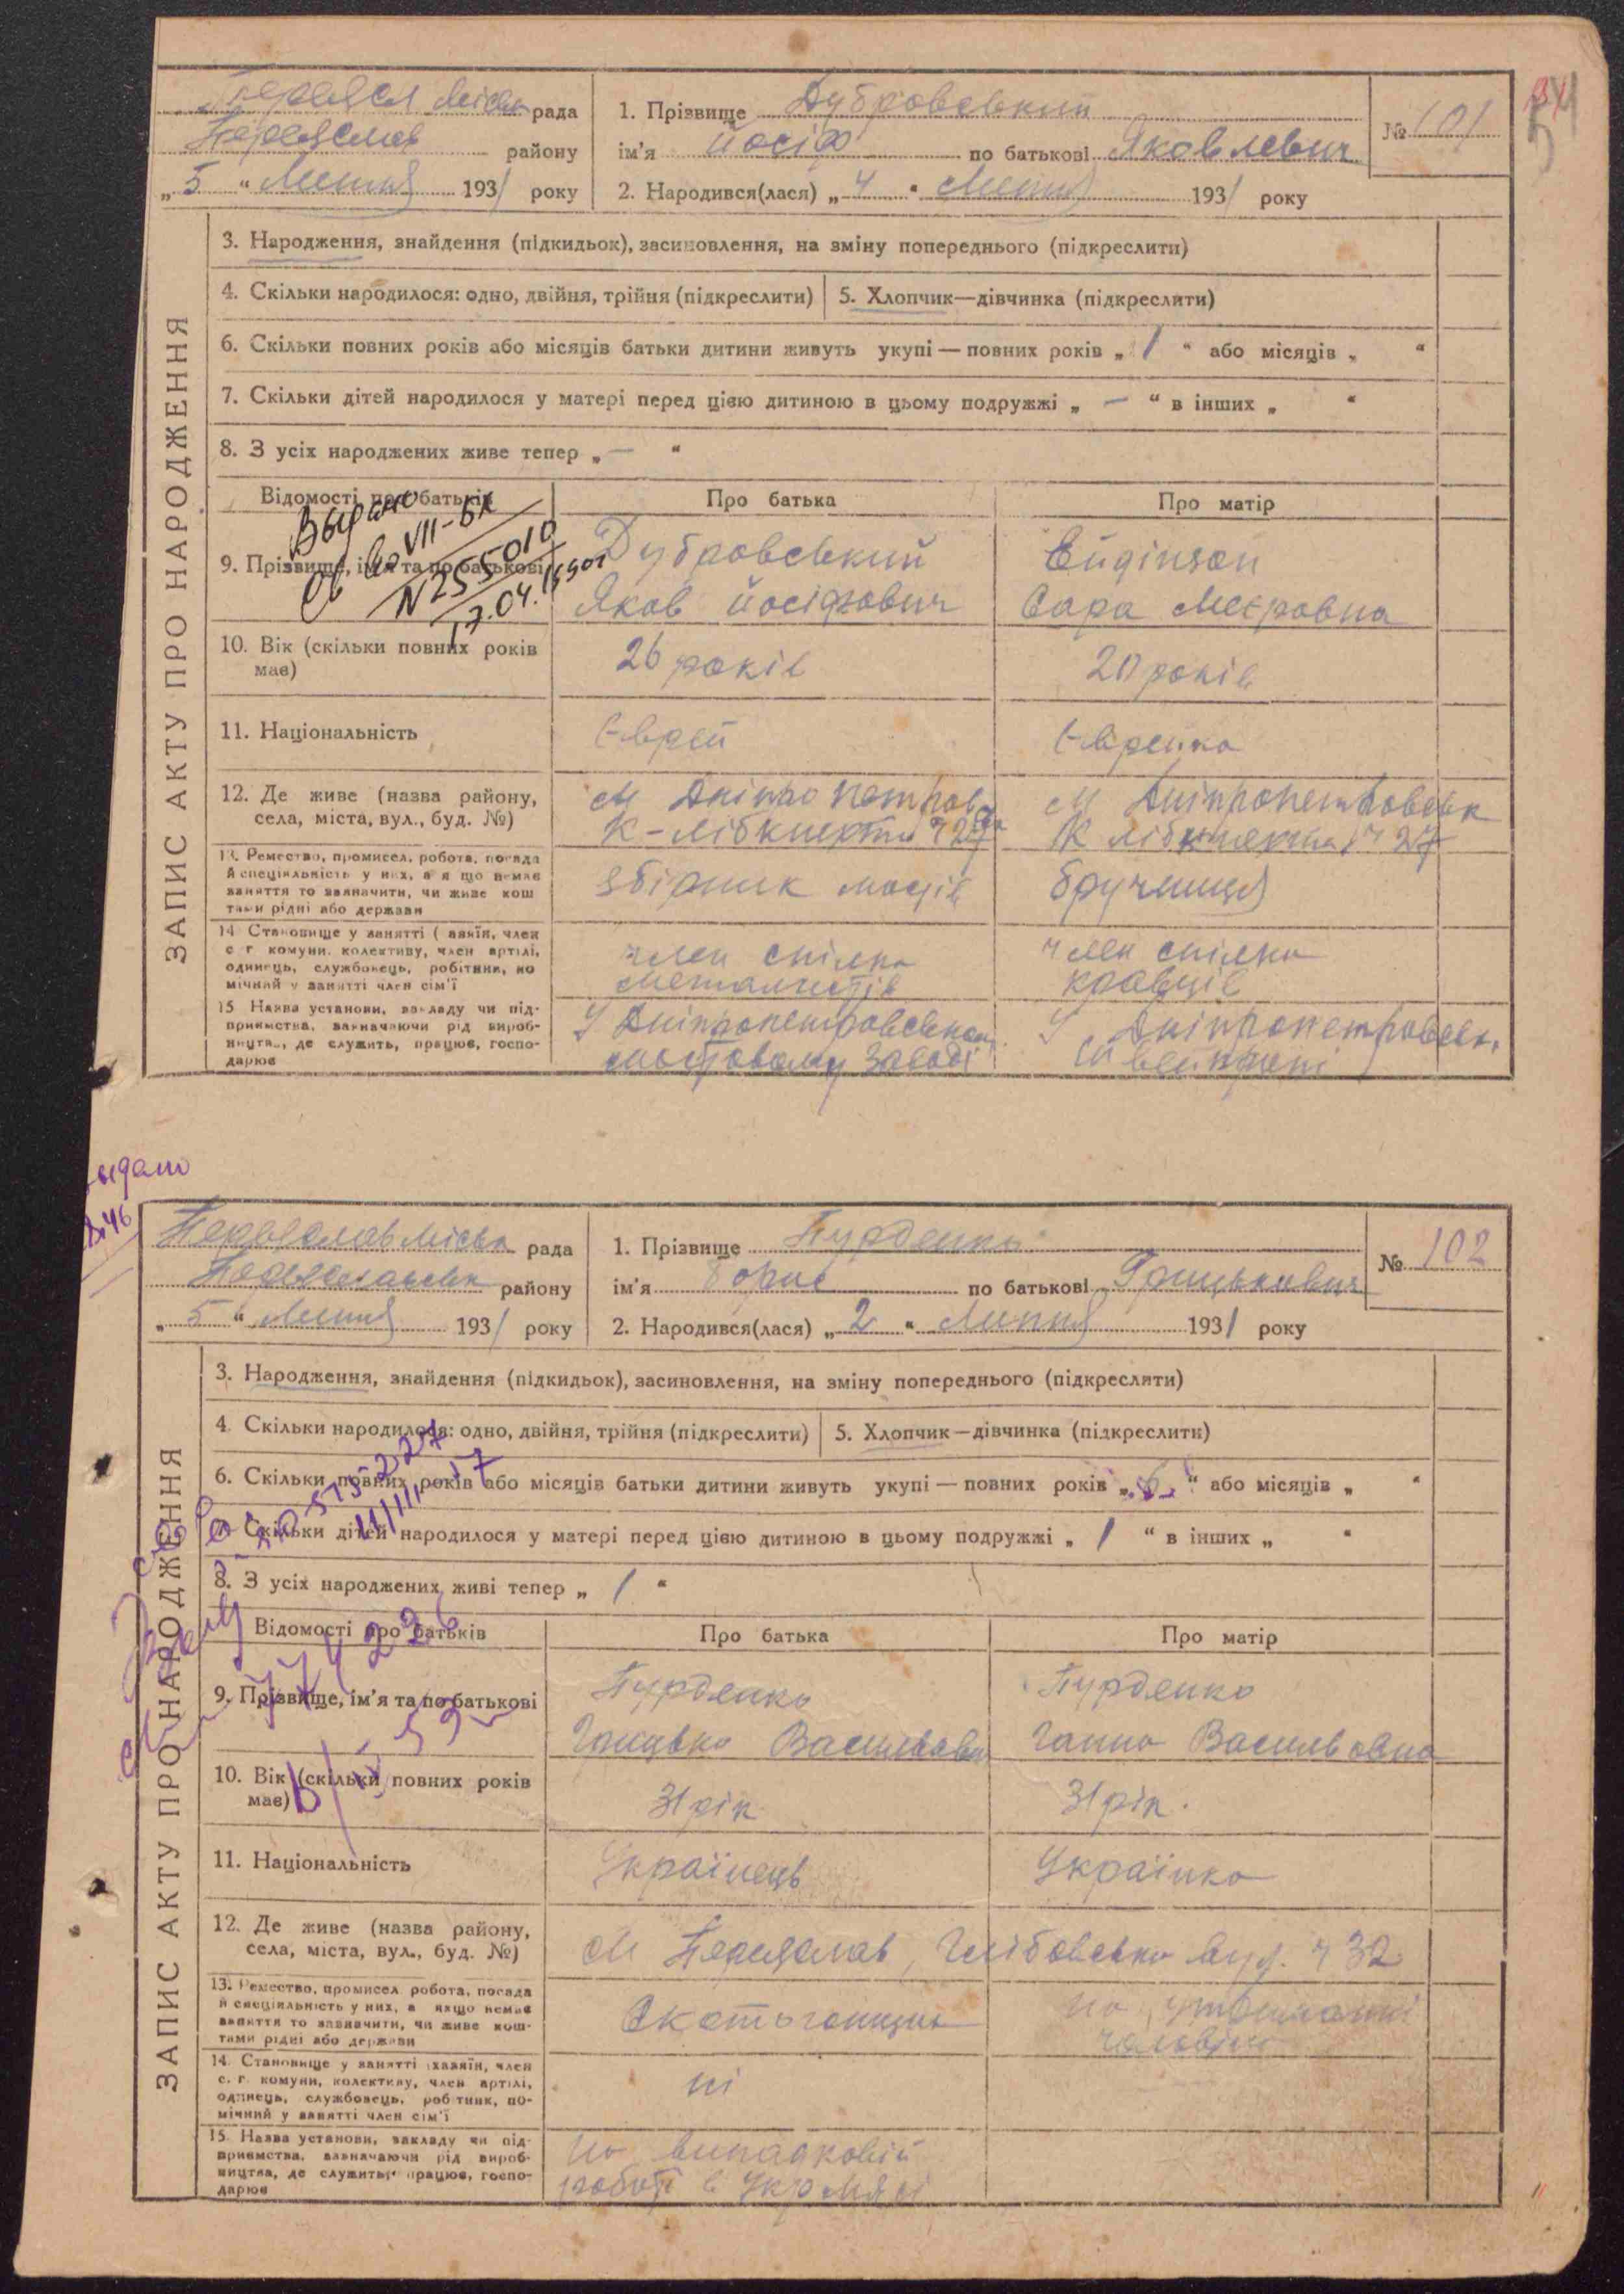 54
Переясл міськ рада
Переяслав району
„5“ Липня 1931 року
1. Прізвище Дубровський
ім'я Йосіф по батькові Яковлевич
2. Народився(лася) „4“ Липня 1931 року
№ 101
ЗАПИС АКТУ ПРО НАРОДЖЕННЯ
3. Народження, знайдення (підкидьок), засиновлення, на зміну попереднього (підкреслити)
4. Скільки народилося: одно, двійня, трійня (підкреслити) 5. Хлопчик—дівчинка (підкреслити)
6. Скільки повних років або місяців батьки дитини живуть укупі — повних років „1“ або місяців „ “
7. Скільки дітей народилося у матері перед цією дитиною в цьому подружжі „—“ в інших „ “
8. З усіх народжених живе тепер „—“
Відомості про батьків Про батька Про матір
Выдано
VII-БК
N 255010
17.04.
9. Прізвище, ім'я та по батькові
Дубровський
Яков Йосіфович
Ейдінзон
Сара Меєровна
10. Вік (скільки повних років
має)
26 років
20 років
11. Національність
Єврей
Єврейка
12. Де живе (назва району,
села, міста, вул., буд. №)
М Дніпропетровськ
К-Лібкнехта ч 27
М Дніпропетровськ
К Лібкнехта ч 27
13. Ремество, промисел, робота, посада
й спеціяльність у них, а я що немає
заняття то зазначити, чи живе кош
тами рідні або держави
збірник мостів
14 Становище у занятті ( хазяїн, член
с г комуни, колективу, член артілі,
одинець, службовець, робітник, по
мічний у занятті член сім'ї
член спілки
металистів
член спілки
кравців
15 Назва установи, закладу чи під-
приємства, зазначаючи рід вироб-
ництва, де служить, працює, госпо-
дарює
У Дніпропетровськом
мостовому заводі
У Дніпропетровськ.
швейпромі
ыдано
46
Переяслав міська рада
Переяславськ району
„5“ Липня 1931 року
1. Прізвище Пурденко
ім'я Борис по батькові Грицькович
2. Народився(лася) „2“ Липня 1931 року
№ 102
ЗАПИС АКТУ ПРО НАРОДЖЕННЯ
3. Народження, знайдення (підкидьок), засиновлення, на зміну попереднього (підкреслити)
4. Скільки народилося: одно, двійня, трійня (підкреслити) 5. Хлопчик—дівчинка (підкреслити)
6. Скільки повних років або місяців батьки дитини живуть укупі — повних років „6“ або місяців „ “
7. Скільки дітей народилося у матері перед цією дитиною в цьому подружжі „1“ в інших „ “
8. З усіх народжених живі тепер „1“
Відомості про батьків Про батька Про матір
9. Прізвище, ім'я та по батькові
Пурденко
Грицько Васильович
Пурденко
Ганна Васильовна
10. Вік (скільки повних років
має)
31 рік
31 рік.
11. Національність
Українець
Українка
12. Де живе (назва району,
села, міста, вул., буд. №)
М Переяслав, Глібовська вул. ч 32
13. Ремество, промисел робота, посада
й спеціяльність у них, а якщо немає
заняття то зазначити, чи живе кош-
тами рідні або держави
Скотогонщик
На утриманні
чоловіка
14. Становище у занятті хазяїн, член
с. г. комуни, колективу, член артілі,
одинець, службовець, робітник, по-
мічний у занятті член сім'ї
ні
15. Назва установи, закладу чи під-
приємства, зазначаючи рід вироб-
ництва, де служить, працює, госпо-
дарює
На випадковій
роботі в Укрмясі